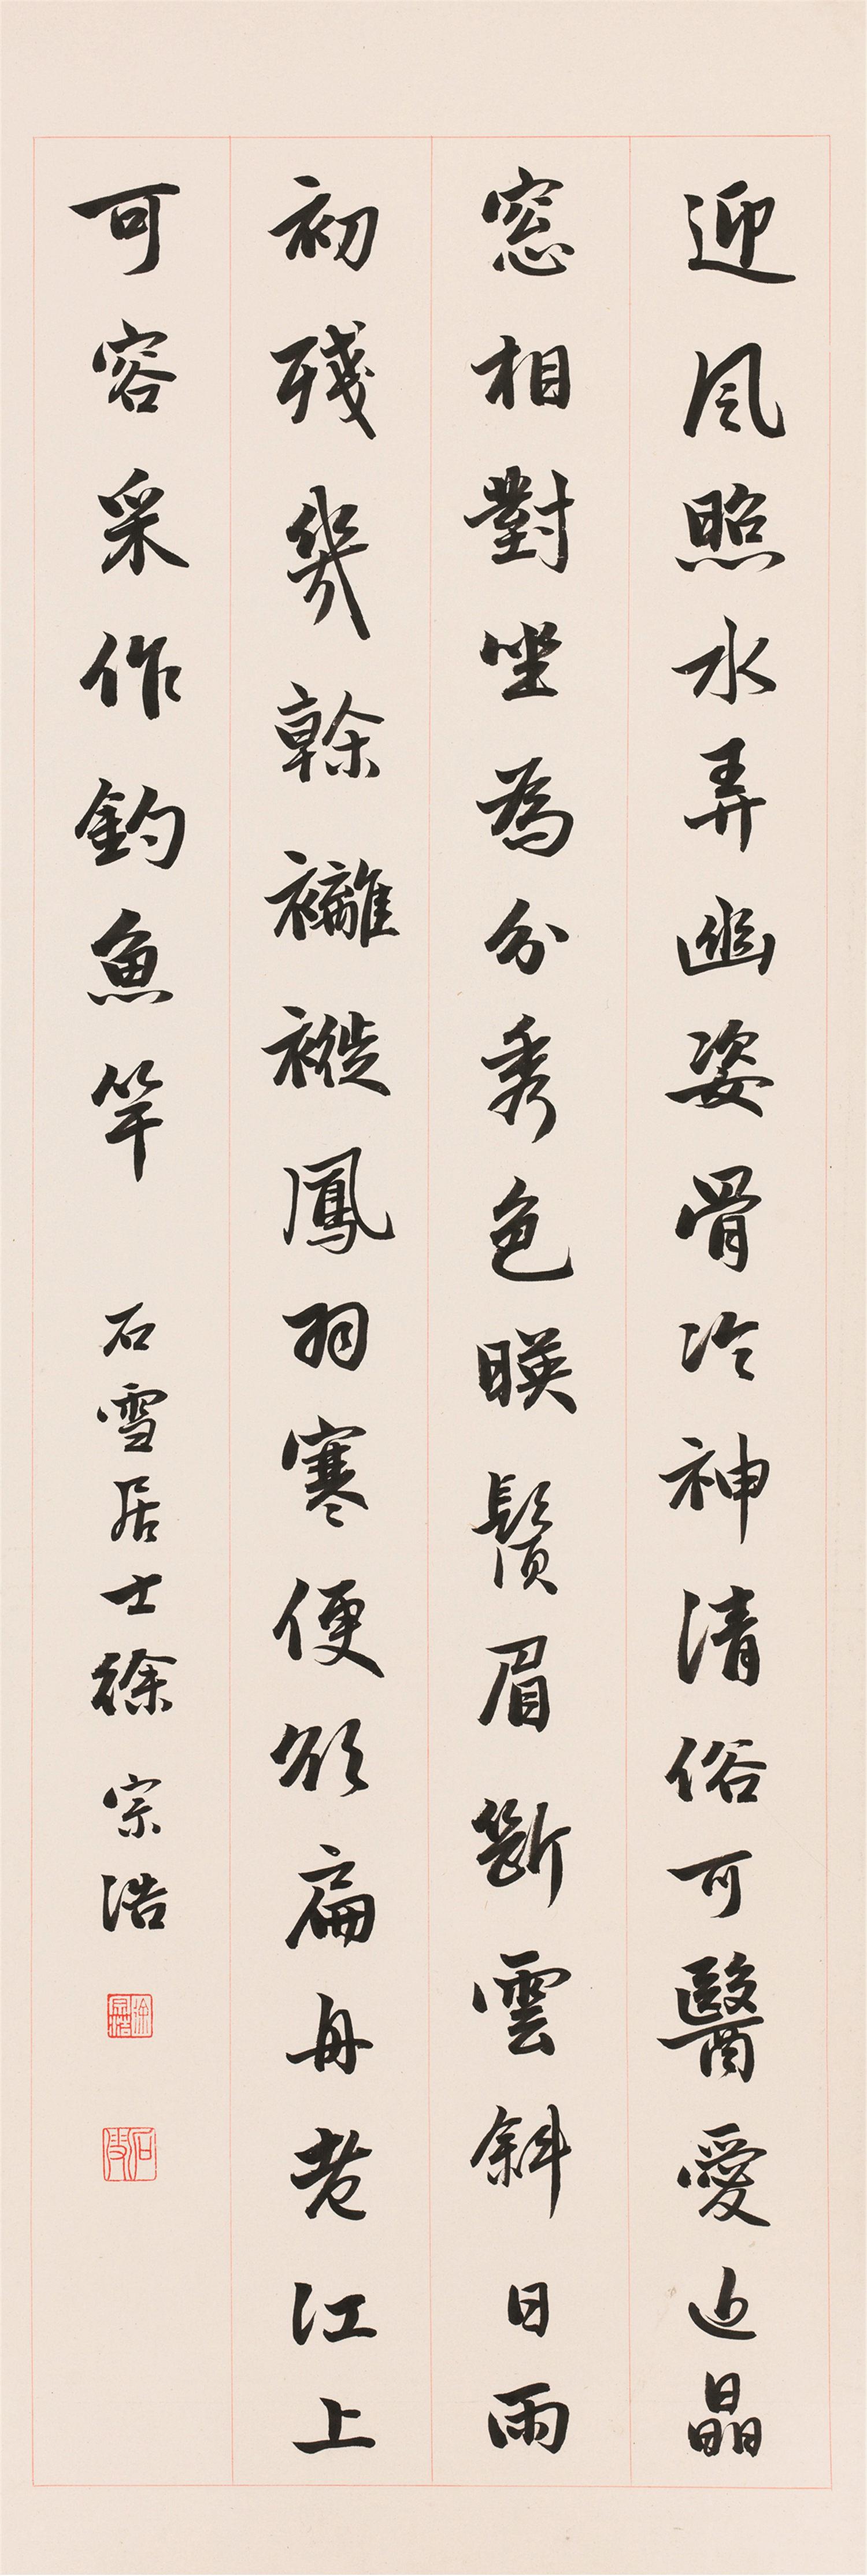 迎風照水弄幽姿骨冷神清俗可醫愛近晶
窓相對坐為分秀色映鬚眉斷雲斜日雨
初殘幾榦褵褷鳳羽寒便欲扁舟老江上
可容采作釣魚竿
石雪居士徐宗浩
徐宗浩
石雪